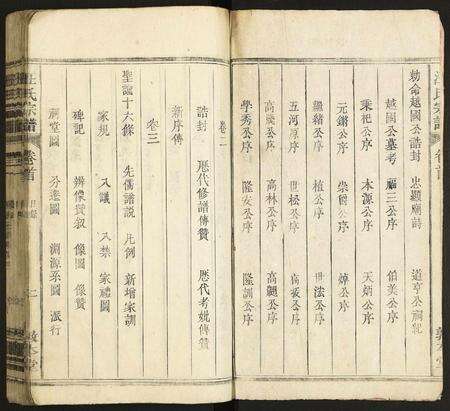 汪氏宗譜 卷首
勅命越國公誥封 忠顯廟詩 道亨公祠記
越國公墓考 福三公序 伯美公序
秉祀公序 本源公序 天炳公序
元鏘公序 崇爵公序 焯公序
繼緒公序 植公序 世法公序
五河原序 世松公序 高 公序
高慶公序 高林公序 高颺公序
學秀公序 隆友公序 隆訓公序
敦本堂
卷二
誥封 歷代修譜傳贊 歷代考妣傳贊
新序傳
卷三
聖諭十六條 先儒譜說 凡例 新增家訓
家規 八議 八禁 家禮圖
碑記 辨像贊叙 像圖 像贊
祠堂圖 分遷圖 淵源系圖 派行
汪氏宗譜 卷首 目錄 二 敦本堂